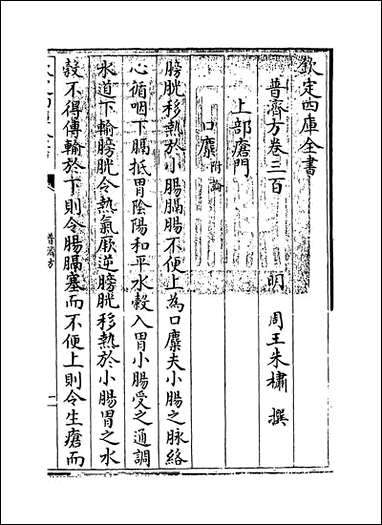 欽定四庫全書
普濟方卷三百
明 周王朱橚 撰
上部瘡門
口糜附論
膀胱移熱於小腸膈腸不便上為口糜夫小腸之脉絡
心循咽下膈抵胃陰陽和平水穀入胃小腸受之通調
水道下輸膀胱令熱氣厥逆膀胱移熱於小腸胃之水
穀不得傅輸於下則令腸膈塞而不便上則令生瘡而
普濟方